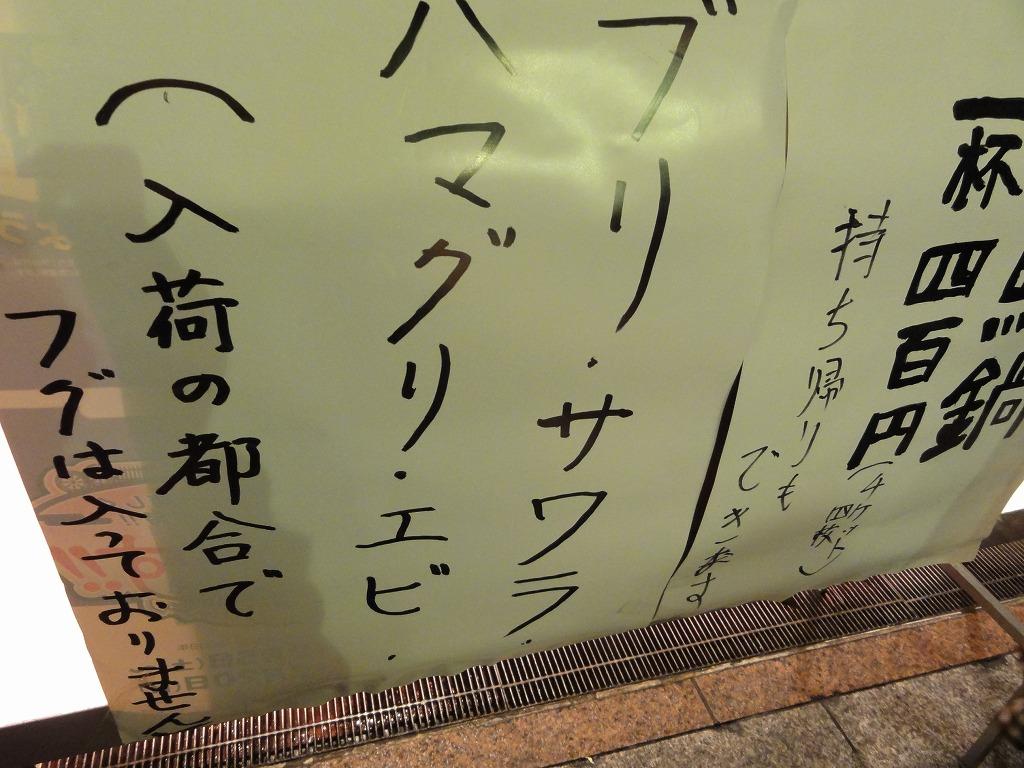 鍋
一杯四百円
（チケット四枚）
持ち帰りも
できます
ブリ・サワラ・
ハマグリ・エビ・
（入荷の都合で
フグは入っておりません